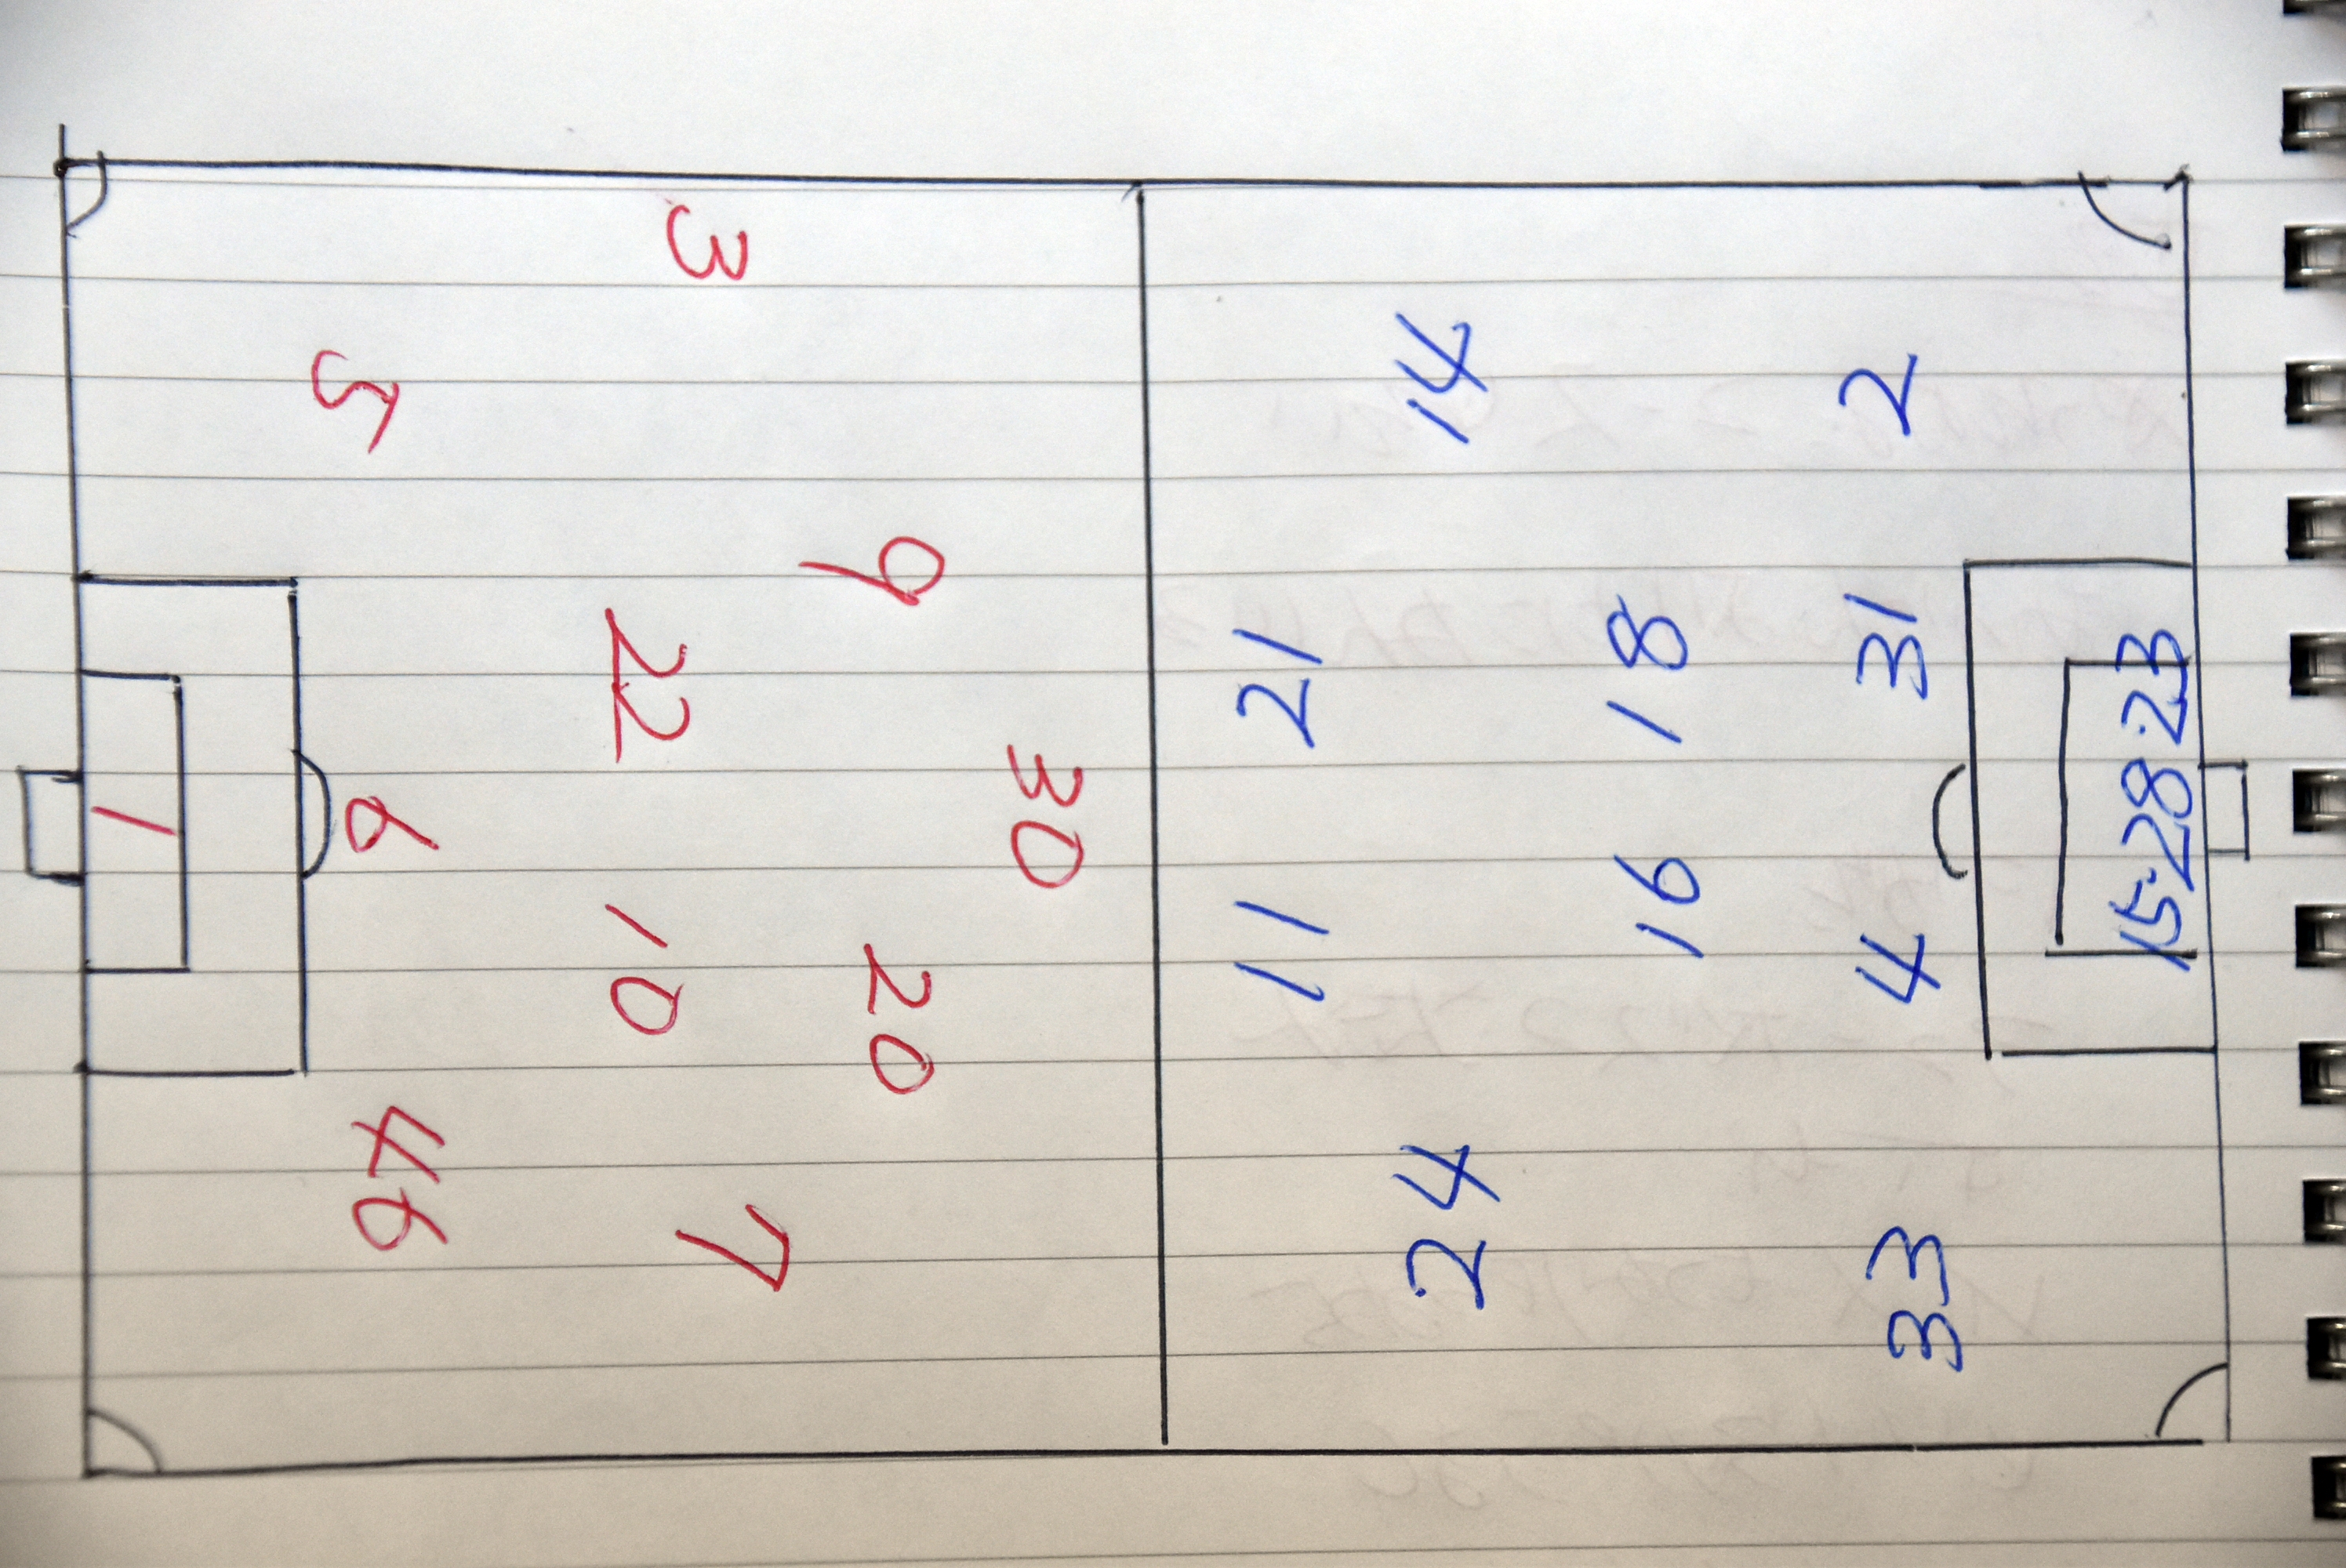 3
5
9
22
30
6
1
10
20
46
7
14
2
21
18
31
11
16
4
15・28・23
24
33